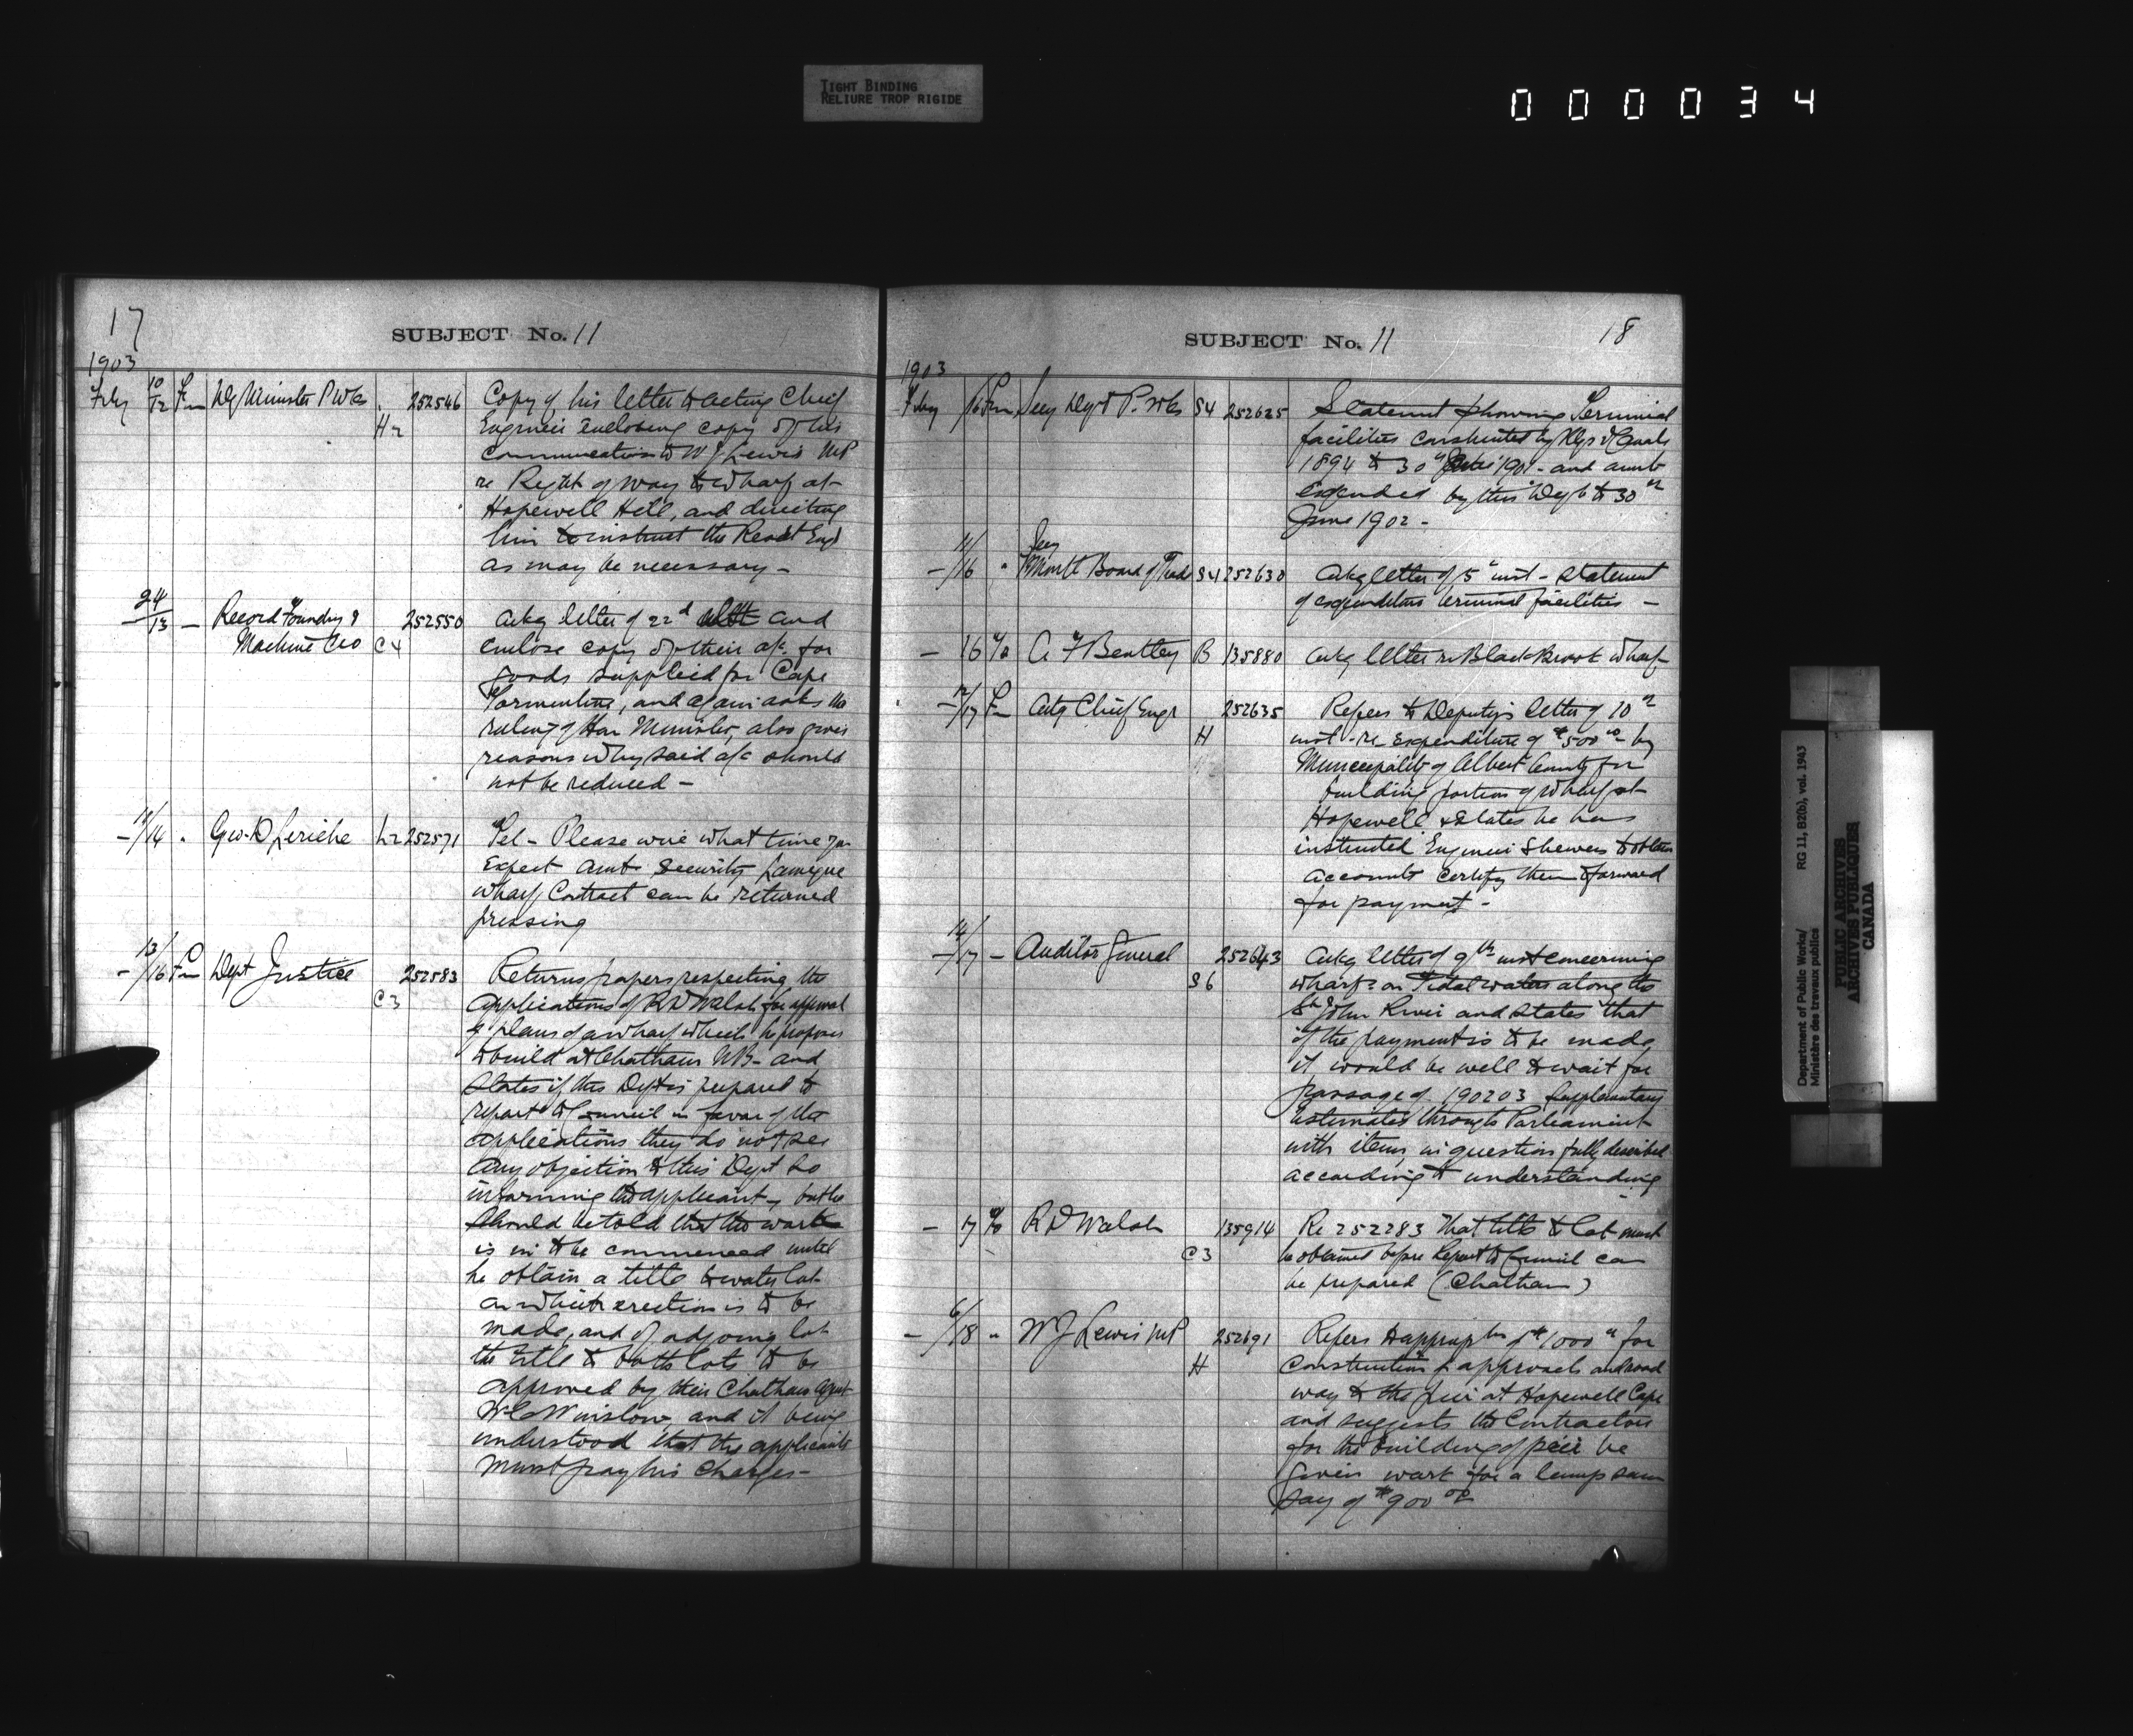 TIGHT BINDING
RELIURE TROP RIGIDE
000034
17
SUBJECT No. 11
1903
Feby 10/12 Fm Dy Minister P Wks H2 252546 Copy of his letter to acting Chief
Engineer enclosing copy of his
communication to W J Lewis MP
re Right of way to Wharf at
Hopewell Hill, and directing
him to instruct the Resdt Engr
as may be necessary -
24/13 - Record Foundry & 252550 Ackg letter of 22d ult and
Machine Co C4 enclose copy of their a/c for
goods supplied for Cape
Tormentine, and again asks the
ruling of Hon Minister, also gives
reasons why said a/c should
not be reduced -
- /14 " Geo. D Leriche L2 252571 Tel - Please wire what time you
expect amt security Lameque
Wharf Contract can be returned
pressing
- 13/16 Fm Dept Justice 252583 Returns papers respecting the
C3 applications of R D Walsh for approval
of plans of a wharf which he proposes
to build at Chatham NB - and
states if this Dept is prepared to
report to Council in favor of the
applications they do not see
any objection to this Dept so
informing the applicant -, but he
should be told that the work
is in to be commenced until
he obtain a title to water lot
on which erection is to be
made, and of adjoing lot
the title to both lots to be
approved by their Chatham Agent
Winslow, and it being
understood that the applicants
must pay his charges -
SUBJECT No. 11
18
1903
Feby 16 Fm Secy Dept P. Wks S4 252625 Statement showing Terminal
facilities constructed by Rlys & Canals
1894 to 30th June 1901 - and amt
expended by this Dept to 30th
June 1902 -
Secy
- /16 " Montl Board of Trade S4 252630 Ackg letter of 5th inst - Statement
of expenditure terminal facilities -
- 16 To A F Bentley B 135880 Ackg letter re Black Brook Wharf
- 12/17 Fm Actg Chief Engr 252635 Refers to Deputy's letter of 10th
H inst - re expenditure of $500.00 by
Municipality of Albert County for
building portion of Wharf at
Hopewell & states he has
instructed Engineer Shewen to obtain
accounts certify them & forward
for payment -
- 14/17 - Auditor General 252643 Ackg letter of 9th inst concerning
S6 wharfs on Tidal waters along the
St John River and states that
if the payment is to be made,
it would be well to wait for
passage of 1902 03 Supplementary
Estimates through Parliament
with items in question fully described
according to understanding
- 17 To R D Walsh 135914 Re 252283 That title to lot must
C3 be obtained before Report to Council can
be prepared (Chatham)
- 6/18 " W J Lewis MP 252691 Refers to appropn of $1000.00 for
H construction of approach and road
way to the pier at Hopewell Cape
and suggests the Contractors
for the building of pier be
given work for a lump sum
say of $900.00
Department of Public Works/
Ministère des travaux publics
RG 11, B2(b), vol. 1943
PUBLIC ARCHIVES
ARCHIVES PUBLIQUES
CANADA